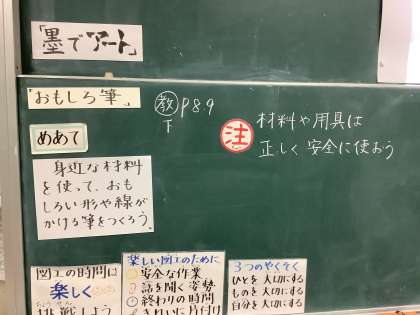 「墨でアート」
「おもしろ筆」
教 P8.9
下
めあて
身近な材料
を使って、おも
しろい形や線が
かける筆をつくろう
注
材料や用具は
正しく安全に使おう
図工の時間は
楽しく
挑戦しよう
楽しい図工のために
安全な作業
話を聞く姿勢
終わりの時間
きれいに片付け
3つのやくそく
ひとを大切にする
ものを大切にする
自分を大切にする